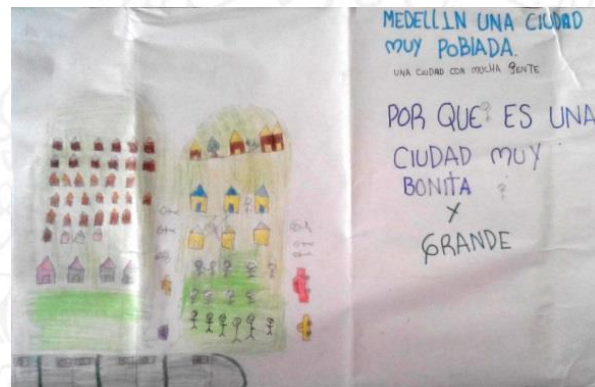 MEDELLIN UNA CIUDAD
MUY POBLADA.
UNA CIUDAD CON MUCHA GENTE
POR QUE? ES UNA
CIUDAD MUY
BONITA ?
Y
GRANDE